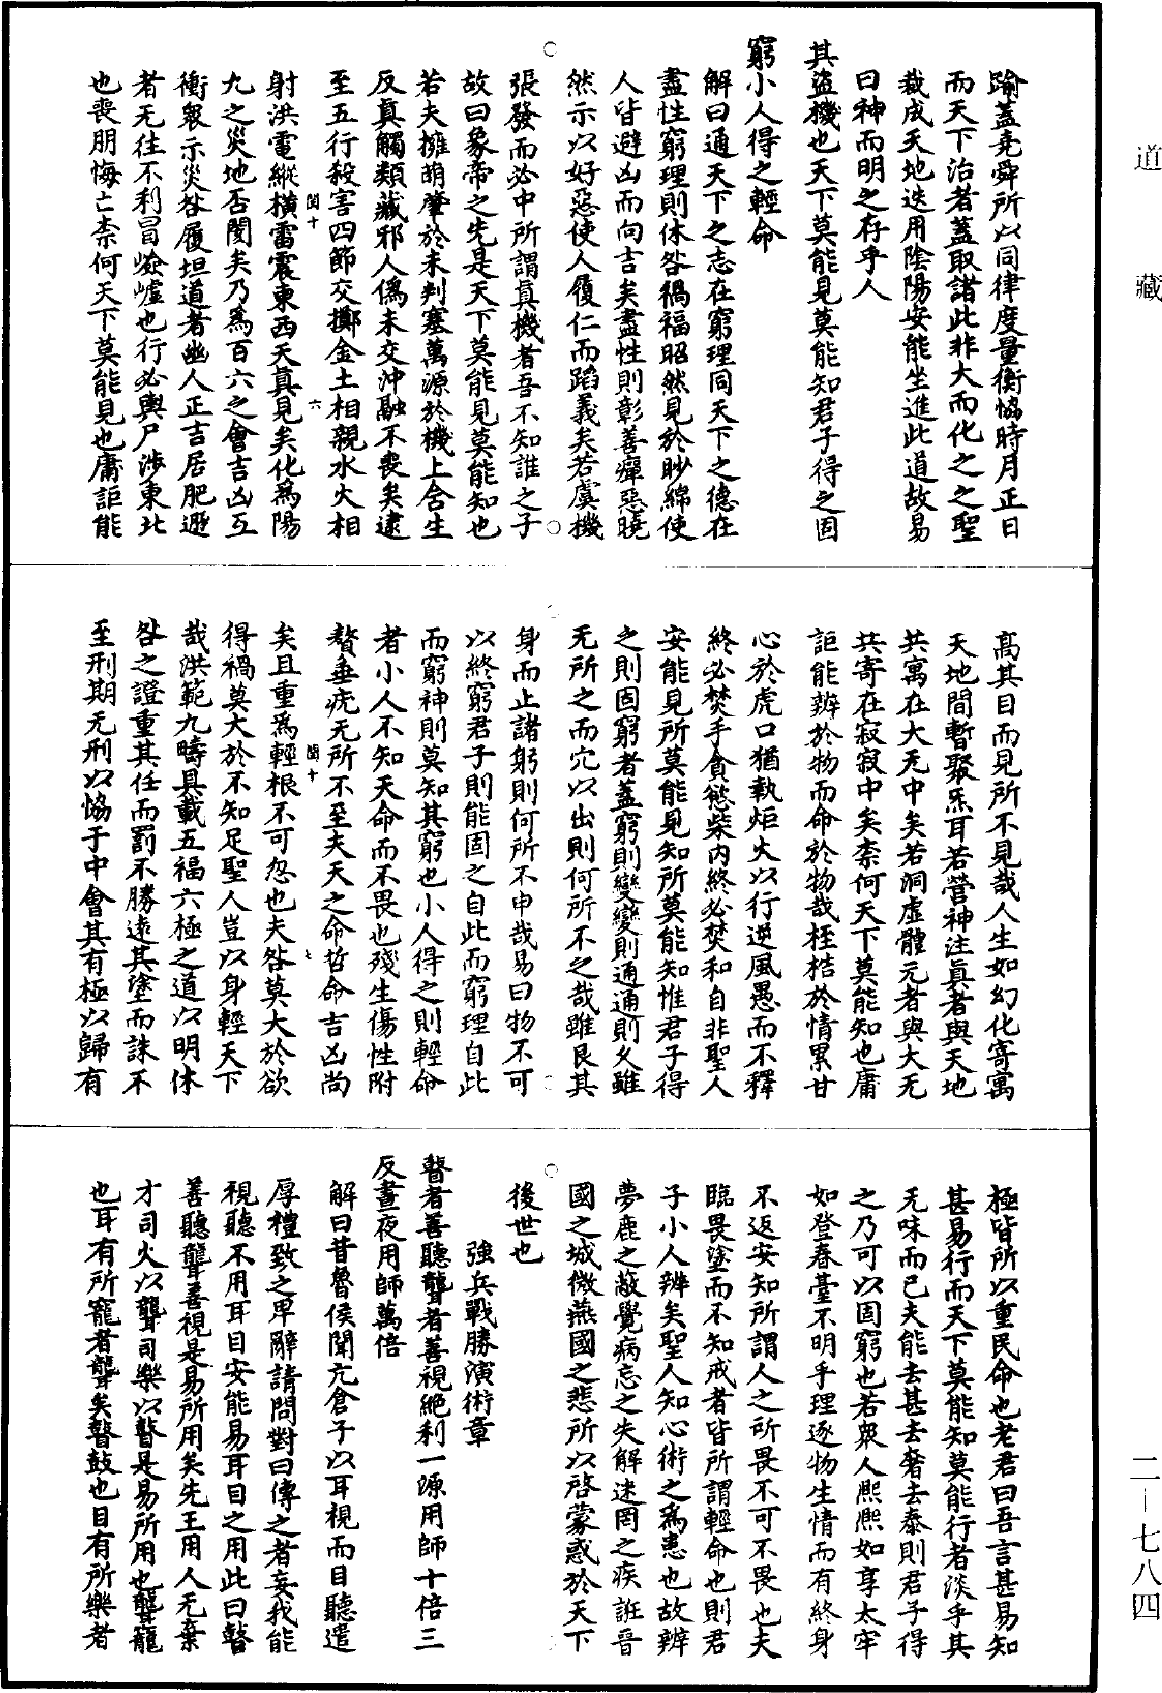 道藏
踰蓋堯舜所以同律度量衡恊時月正日
而天下治者蓋取諸此非大而化之之聖
裁成天地迭用陰陽安能坐進此道故易
曰神而明之存乎人
其盜機也天下莫能見莫能知君子得之固
窮小人得之輕命
解曰通天下之志在窮理同天下之德在
盡性窮理則休咎禍福昭然見於眇綿使
人皆避凶而向吉矣盡性則彰善癉惡曉
然示以好惡使人履仁而蹈義矣若虞機
張發而必中所謂真機者吾不知誰之子
故曰象帝之先是天下莫能見莫能知也
若夫擁萌肇於未判塞萬源於機上含生
反真觸類藏邪人僞未交沖融不喪矣逮
至五行殺害四節交擲金土相親水火相
閏十 六
射洪電縱橫雷震東西天真見矣化爲陽
九之災地否閡矣乃爲百六之會吉凶互
衝衆示災咎履坦道者幽人正吉居肥遯
者无往不利冒嶮巇也行必輿尸渉東北
也喪朋悔亡柰何天下莫能見也庸詎能
髙其目而見所不見哉人生如幻化寄寓
天地間暫聚炁耳若營神注真者與天地
共寓在大无中矣若洞虛體元者與大无
共寄在寂寂中矣柰何天下莫能知也庸
詎能辨於物而命於物哉桎梏於情累甘
心於虎口猶執炬火以行逆風愚而不釋
終必焚手貪慾柴内終必焚和自非聖人
安能見所莫能見知所莫能知惟君子得
之則固窮者蓋窮則變變則通通則久雖
无所之而穴以出則何所不之哉雖艮其
身而止諸躬則何所不申哉易曰物不可
以終窮君子則能固之自此而窮理自此
而窮神則莫知其窮也小人得之則輕命
者小人不知天命而不畏也殘生傷性附
贅垂疣无所不至夫天之命哲命吉凶尚
閏十 七
矣且重爲輕根不可忽也夫咎莫大於欲
得禍莫大於不知足聖人豈以身輕天下
哉洪範九疇具載五福六極之道以明休
咎之證重其任而罰不勝遠其塗而誅不
至刑期无刑以恊于中會其有極以歸有
極皆所以重民命也老君曰吾言甚易知
甚易行而天下莫能知莫能行者淡乎其
无味而已夫能去甚去奢去泰則君子得
之乃可以固窮也若衆人熙熙如享太牢
如登春臺不明乎理逐物生情而有終身
不返安知所謂人之所畏不可不畏也夫
臨畏塗而不知戒者皆所謂輕命也則君
子小人辨矣聖人知心術之爲患也故辨
夢鹿之蔽覺病忘之失解迷罔之疾誑晉
國之城微燕國之悲所以啓蒙惑於天下
後世也
強兵戰勝演術章
瞽者善聽聾者善視絶利一源用師十倍三
反晝夜用師萬倍
解曰昔魯侯聞亢倉子以耳視而目聽遣
厚禮致之卑辭請問對曰傳之者妄我能
視聽不用耳目安能易耳目之用此曰瞽
善聽聾善視是易所用矣先王用人无棄
才司火以聾司樂以瞽是易所用也聾寵
也耳有所寵者聾矣瞽鼓也目有所樂者
二—七八四